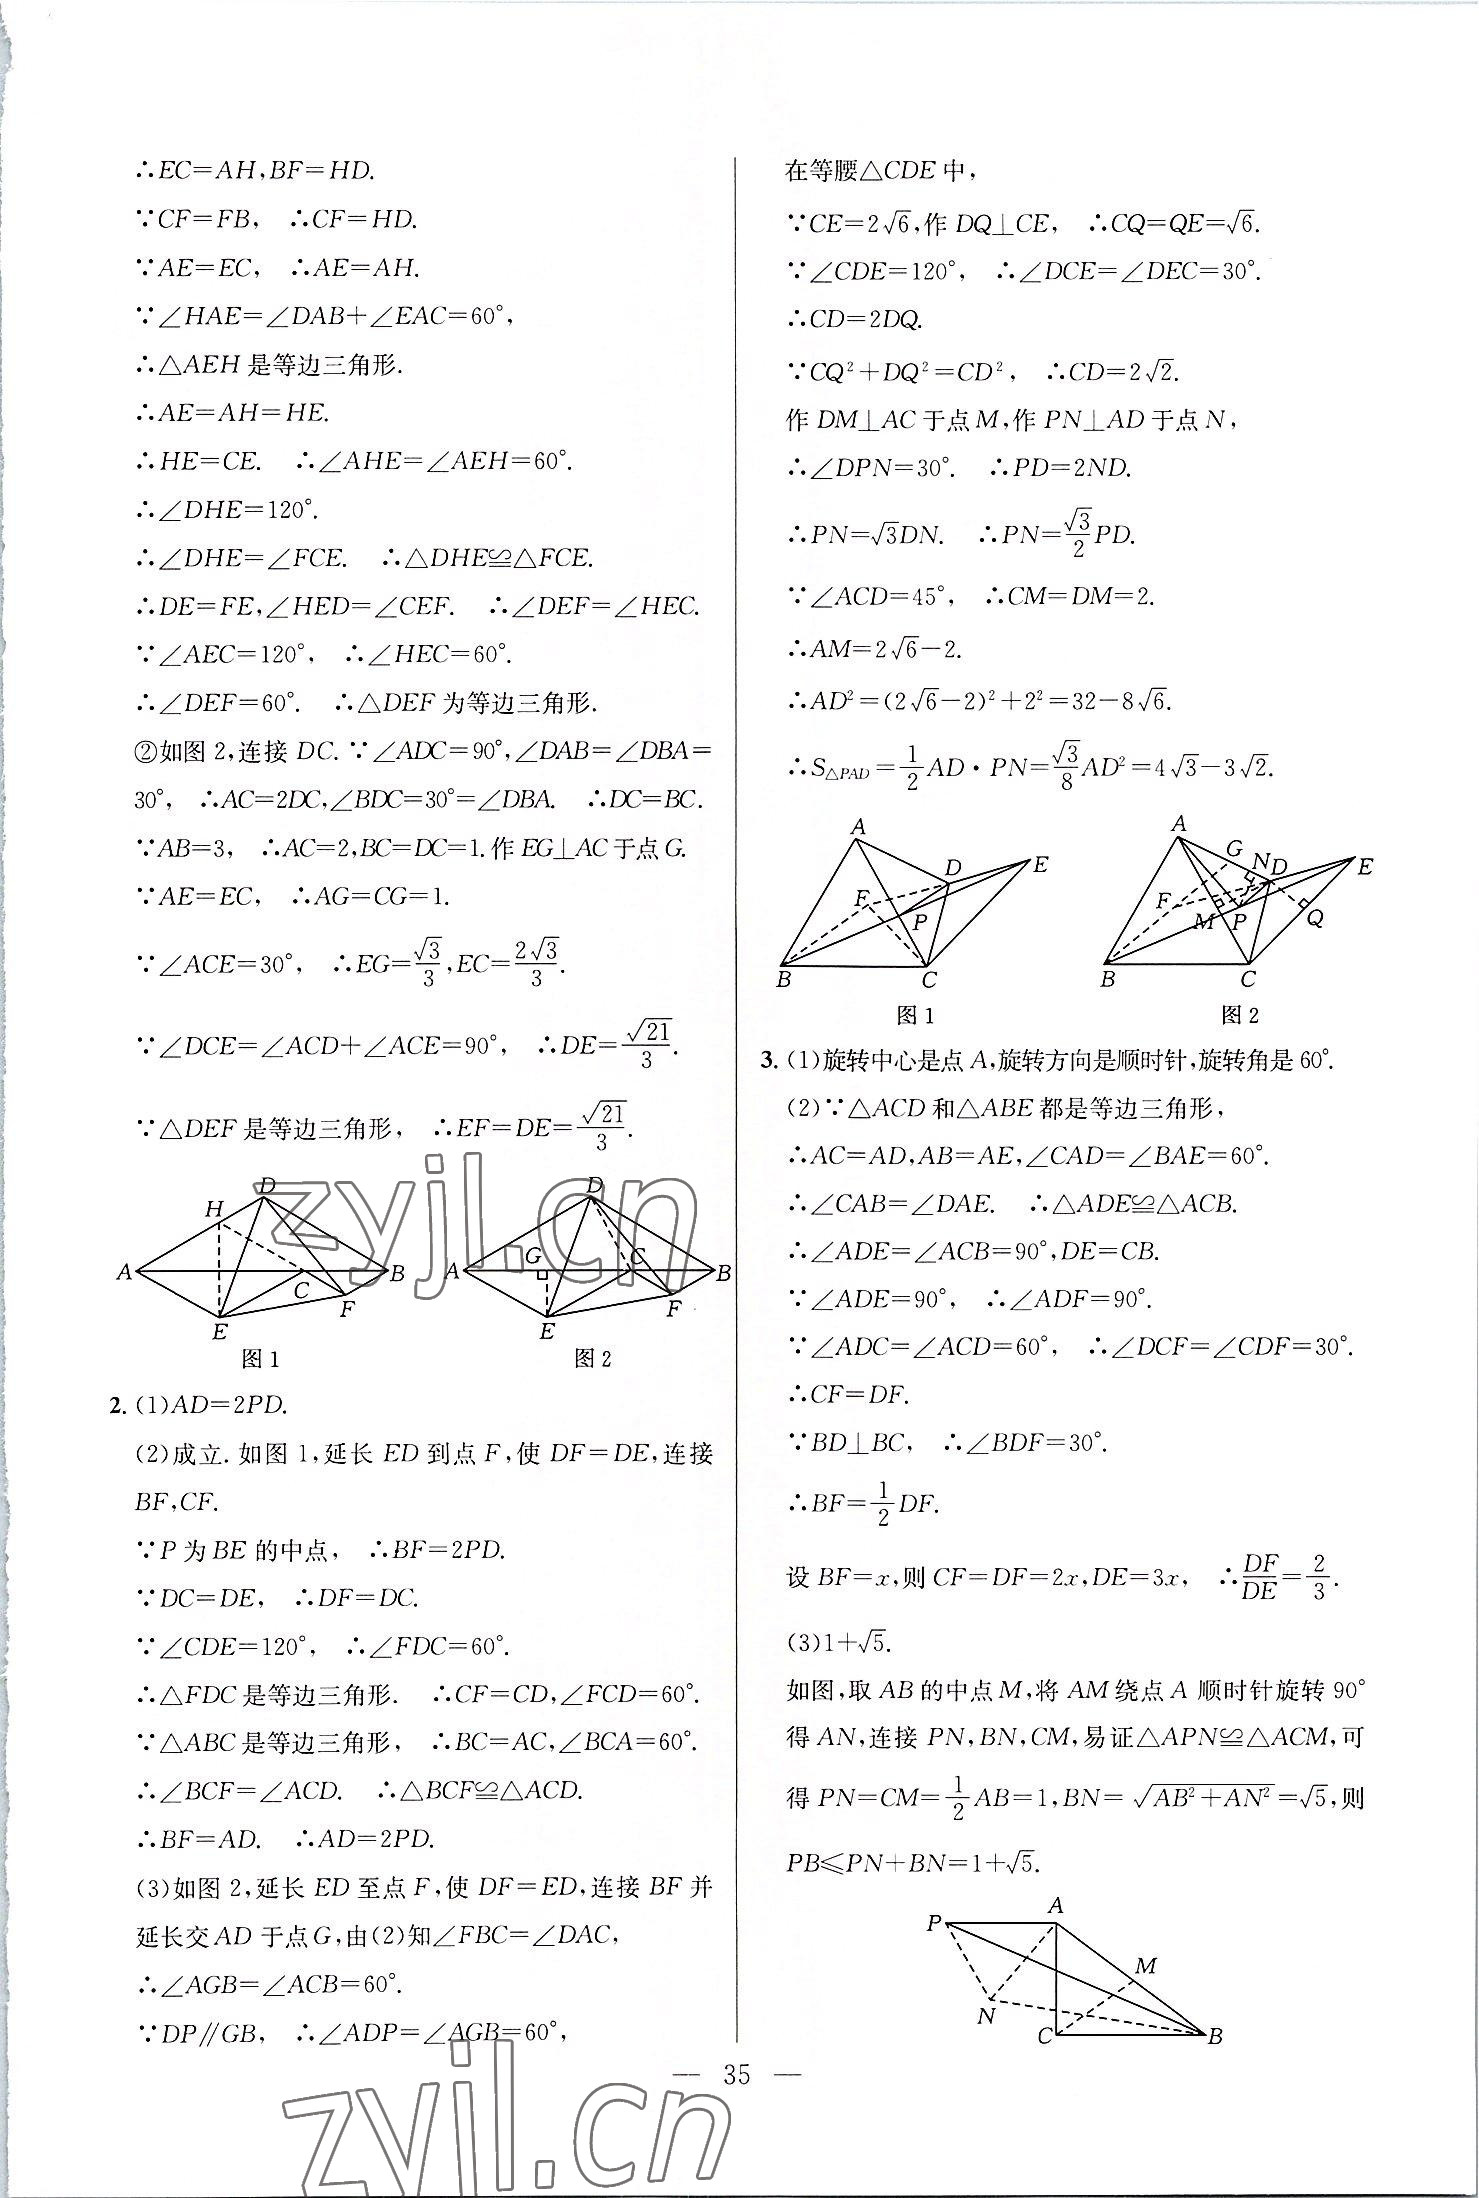 ∴EC=AH,BF=HD.
∵CF=FB, ∴CF=HD.
∵AE=EC, ∴AE=AH.
∵∠HAE=∠DAB+∠EAC=60°,
∴△AEH 是等边三角形.
∴AE=AH=HE.
∴HE=CE. ∴∠AHE=∠AEH=60°.
∴∠DHE=120°.
∴∠DHE=∠FCE. ∴△DHE≌△FCE.
∴DE=FE,∠HED=∠CEF. ∴∠DEF=∠HEC.
∵∠AEC=120°, ∴∠HEC=60°.
∴∠DEF=60°. ∴△DEF 为等边三角形.
②如图 2,连接 DC. ∵∠ADC=90°,∠DAB=∠DBA=
30°, ∴AC=2DC,∠BDC=30°=∠DBA. ∴DC=BC.
∵AB=3, ∴AC=2,BC=DC=1.作 EG⊥AC于点 G.
∵AE=EC, ∴AG=CG=1.
∵∠ACE=30°, ∴EG=√3/3,EC=2√3/3.
∵∠DCE=∠ACD+∠ACE=90°, ∴DE=√21/3.
∵△DEF 是等边三角形, ∴EF=DE=√21/3.
D
H
A
B
C
F
E
图 1
D
G
A
C
B
F
E
图 2
2. (1)AD=2PD.
(2)成立. 如图 1,延长 ED 到点 F,使 DF=DE,连接
BF,CF.
∵P 为 BE 的中点, ∴BF=2PD.
∵DC=DE, ∴DF=DC.
∵∠CDE=120°, ∴∠FDC=60°.
∴△FDC 是等边三角形. ∴CF=CD,∠FCD=60°.
∵△ABC 是等边三角形, ∴BC=AC,∠BCA=60°.
∴∠BCF=∠ACD. ∴△BCF≌△ACD.
∴BF=AD. ∴AD=2PD.
(3)如图 2,延长 ED 至点 F,使 DF=ED,连接 BF 并
延长交 AD 于点 G,由(2)知∠FBC=∠DAC,
∴∠AGB=∠ACB=60°.
∵DP∥GB, ∴∠ADP=∠AGB=60°,
在等腰△CDE 中,
∵CE=2√6,作 DQ⊥CE, ∴CQ=QE=√6.
∵∠CDE=120°, ∴∠DCE=∠DEC=30°.
∴CD=2DQ.
∵CQ²+DQ²=CD², ∴CD=2√2.
作 DM⊥AC 于点 M,作 PN⊥AD 于点 N,
∴∠DPN=30°. ∴PD=2ND.
∴PN=√3DN. ∴PN=√3/2PD.
∵∠ACD=45°, ∴CM=DM=2.
∴AM=2√6-2.
∴AD²=(2√6-2)²+2²=32-8√6.
∴S△PAD=1/2AD·PN=√3/8AD²=4√3-3√2.
A
D
E
F
P
B
C
图 1
A
G
N
D
E
F
M
P
Q
B
C
图 2
3. (1)旋转中心是点 A,旋转方向是顺时针,旋转角是 60°.
(2)∵△ACD 和△ABE 都是等边三角形,
∴AC=AD,AB=AE,∠CAD=∠BAE=60°.
∴∠CAB=∠DAE. ∴△ADE≌△ACB.
∴∠ADE=∠ACB=90°,DE=CB.
∵∠ADE=90°, ∴∠ADF=90°.
∵∠ADC=∠ACD=60°, ∴∠DCF=∠CDF=30°.
∴CF=DF.
∵BD⊥BC, ∴∠BDF=30°.
∴BF=1/2DF.
设 BF=x,则 CF=DF=2x,DE=3x, ∴DF/DE=2/3.
(3)1+√5.
如图,取 AB 的中点 M,将 AM 绕点 A 顺时针旋转 90°
得 AN,连接 PN,BN,CM,易证△APN≌△ACM,可
得 PN=CM=1/2AB=1,BN=√(AB²+AN²)=√5,则
PB≤PN+BN=1+√5.
P
A
M
N
C
B
— 35 —
zyjl.cn
zyjl.cn